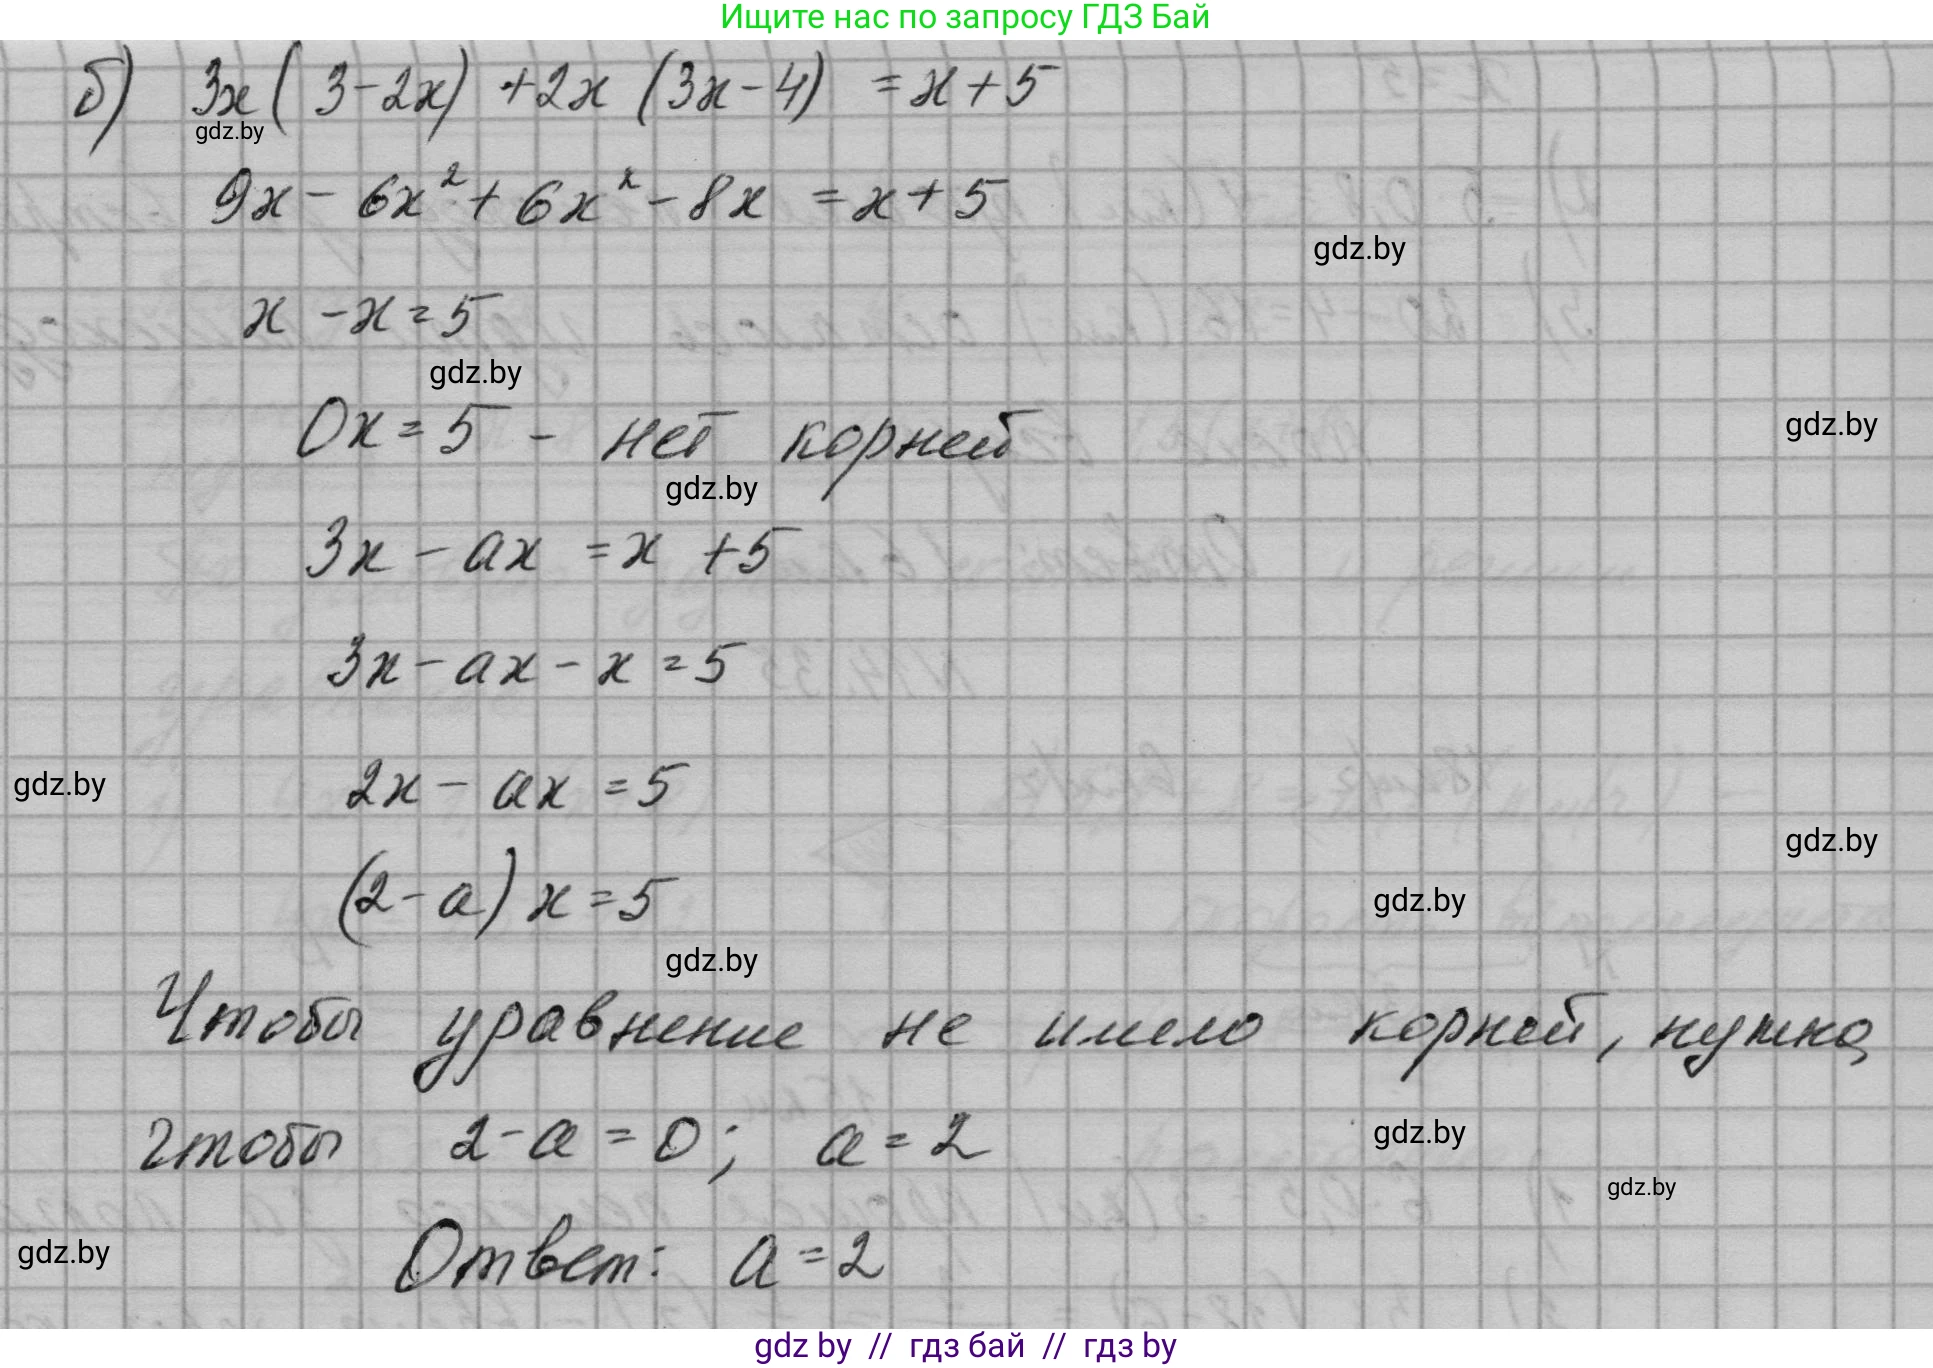 Ищите нас по запросу ГДЗ Бай
б) 3x(3-2x) +2x (3x-4) =x+5
gdz.by
9x- 6x²+6x²-8x =x+5
gdz.by
x -x=5
gdz.by
0x=5 - нет корней
gdz.by
gdz.by
3x -ax =x +5
3x-ax-x=5
2x- ax =5
gdz.by
gdz.by
(2-a) x=5
gdz.by
gdz.by
Чтобы уравнение не имело корней, нужно,
чтобы 2-a=0; a=2
gdz.by
gdz.by
Ответ: a=2
gdz.by
gdz by // гдз бай // гдз by